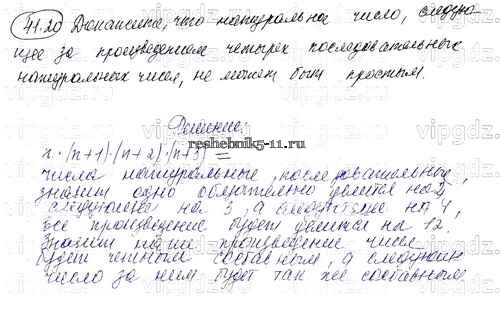 41.20 Докажите, что натуральное число, следую-
щее за произведением четырех последовательных
натуральных чисел, не может быть простым.
Решение:
reshebnik5-11.ru
n·(n+1)·(n+2)·(n+3) =
числа натуральные, последовательные,
значит одно обязательно делится на 2,
на 3, а следующее на 4,
все произведение будет делится на 12.
Значит наше произведение чисел
будет четным составным, а следующее
число за ним будет так же составным